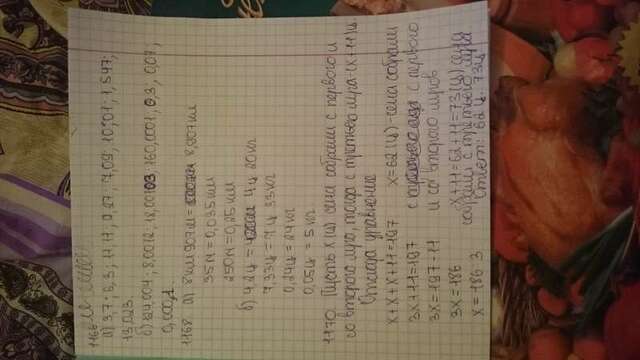 1166
а) 3,7; 6,3; 11,11; 0,27; 7,09; 10,01; 1,547;
13,023.
б) 124,004; 8,0012; 18,00103; 160,0001; 0,3; 0,07;
0,0001.
1168. а) 8 км 907 м = 8,907 км
35 м = 0,035 км
250 м = 0,25 км
б) 4,2 ц = 4 ц 20 кг
7,33 ц = 7 ц 33 кг
0,24 ц = 24 кг
0,05 ц = 5 кг
1170. Пусть x (ц) сена собрали с первого и
со второго луга, тогда с третьего луга - (x+11) ц.
Отсюда уравнение
x+x+x+11=197 x=62 (ц) - сена собрали
3x+11=197 с первого
3x=197-11 и со второго лугов
3x=186 x+11=62+11=73 (ц) сена
собрали с третьего луга
x=186:3 Ответ: 62 ц. 73 ц.